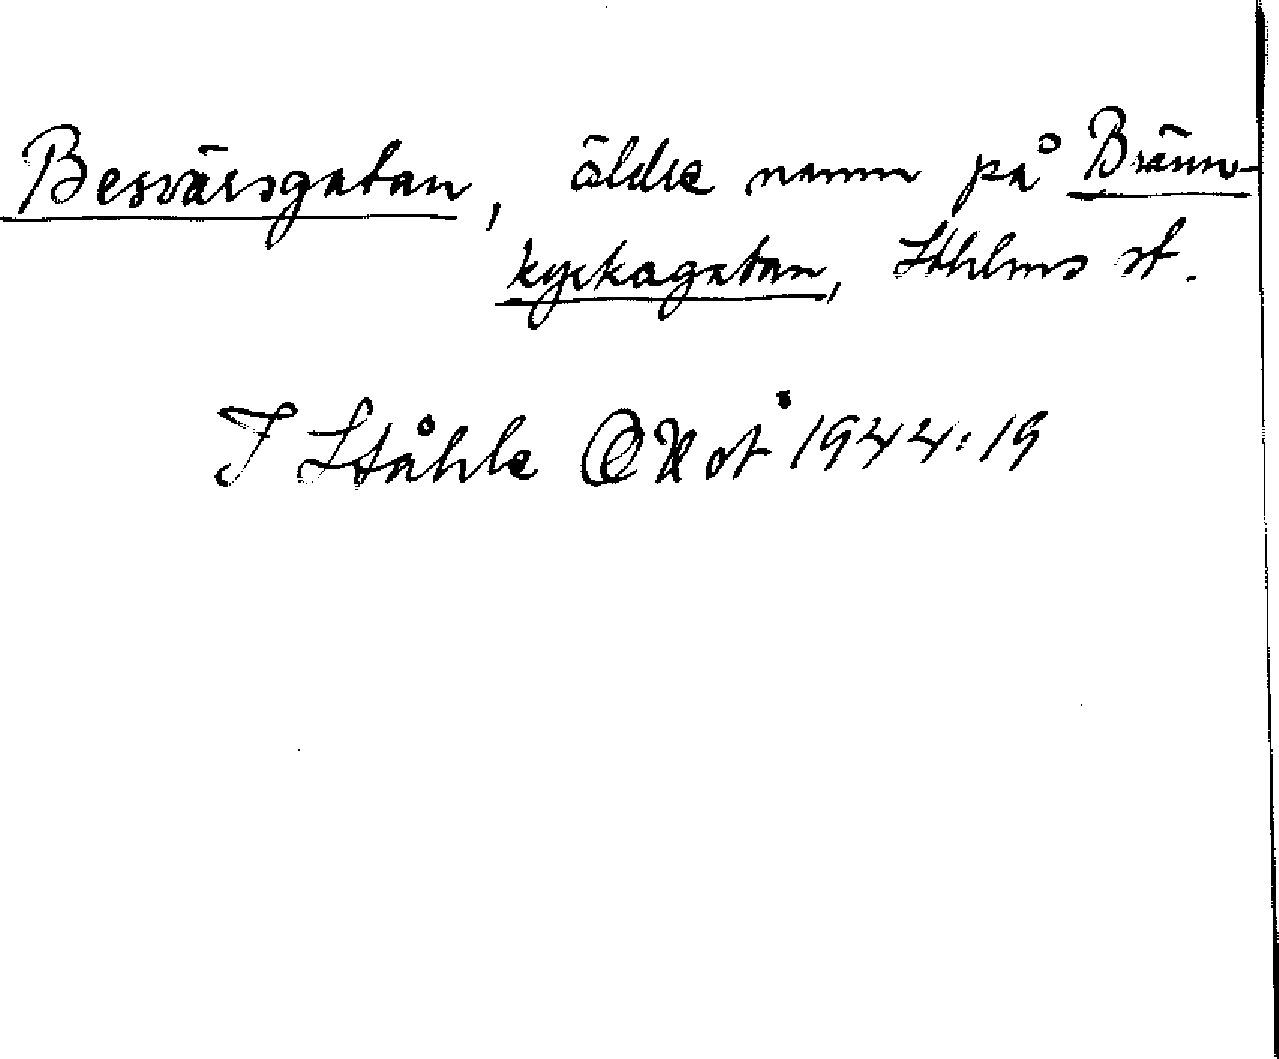 Besvärsgatan, äldre namn på Bränn-
kyrkagatan, Sthlms st.
I Ståhle ONot 1944:19